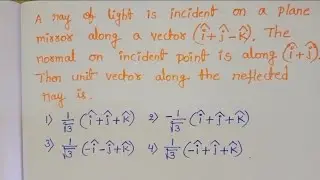 A ray of light is incident on a plane
mirror along a vector (î+ĵ-k̂). The
normal on incident point is along (î+ĵ).
Then unit vector along the reflected
ray is.
1) 1/√3 (î+ĵ+k̂) 2) -1/√3 (î+ĵ+k̂)
3) 1/√3 (-î-ĵ+k̂) 4) 1/√3 (-î+ĵ+k̂)